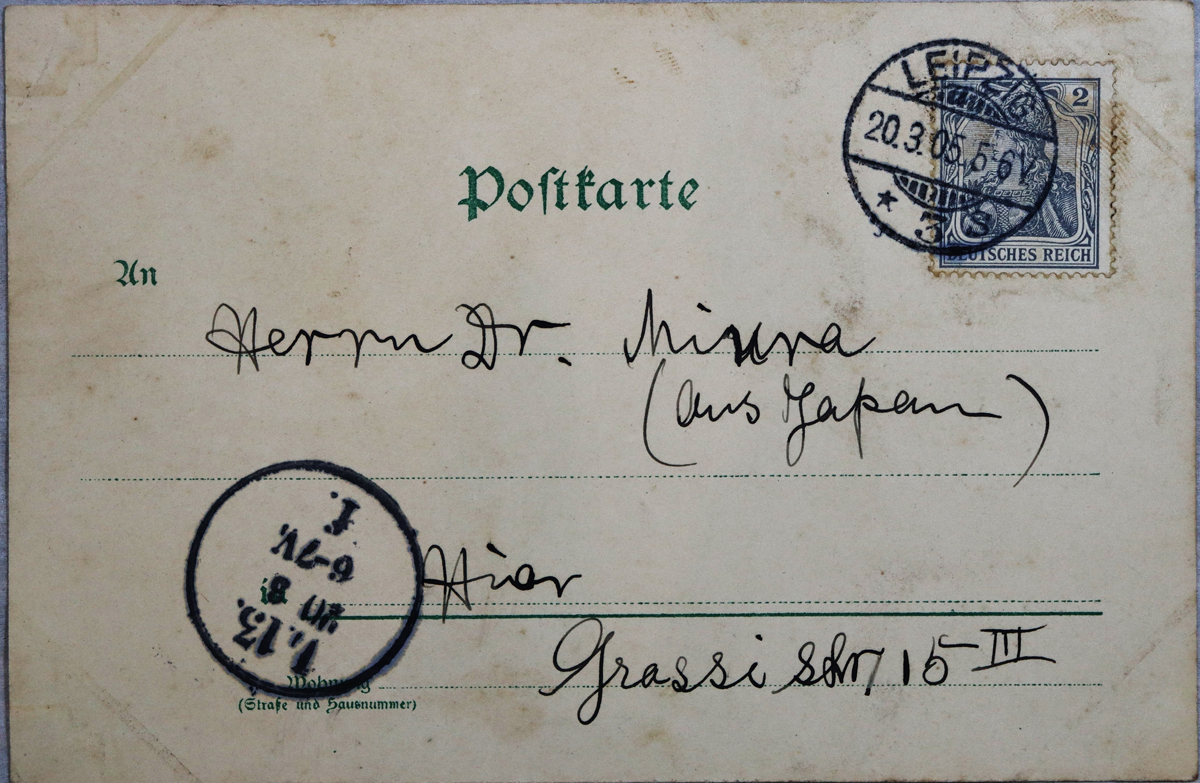 Postkarte
LEIPZIG
20.3.05. 5-6V
* 3 s
2
DEUTSCHES REICH
An
Herrn Dr. Miura
(aus Japan)
in
Hier
Wohnung
(Straße und Hausnummer)
Grassistr. 15 III
L. 13.
20 3
6-7V.
I.